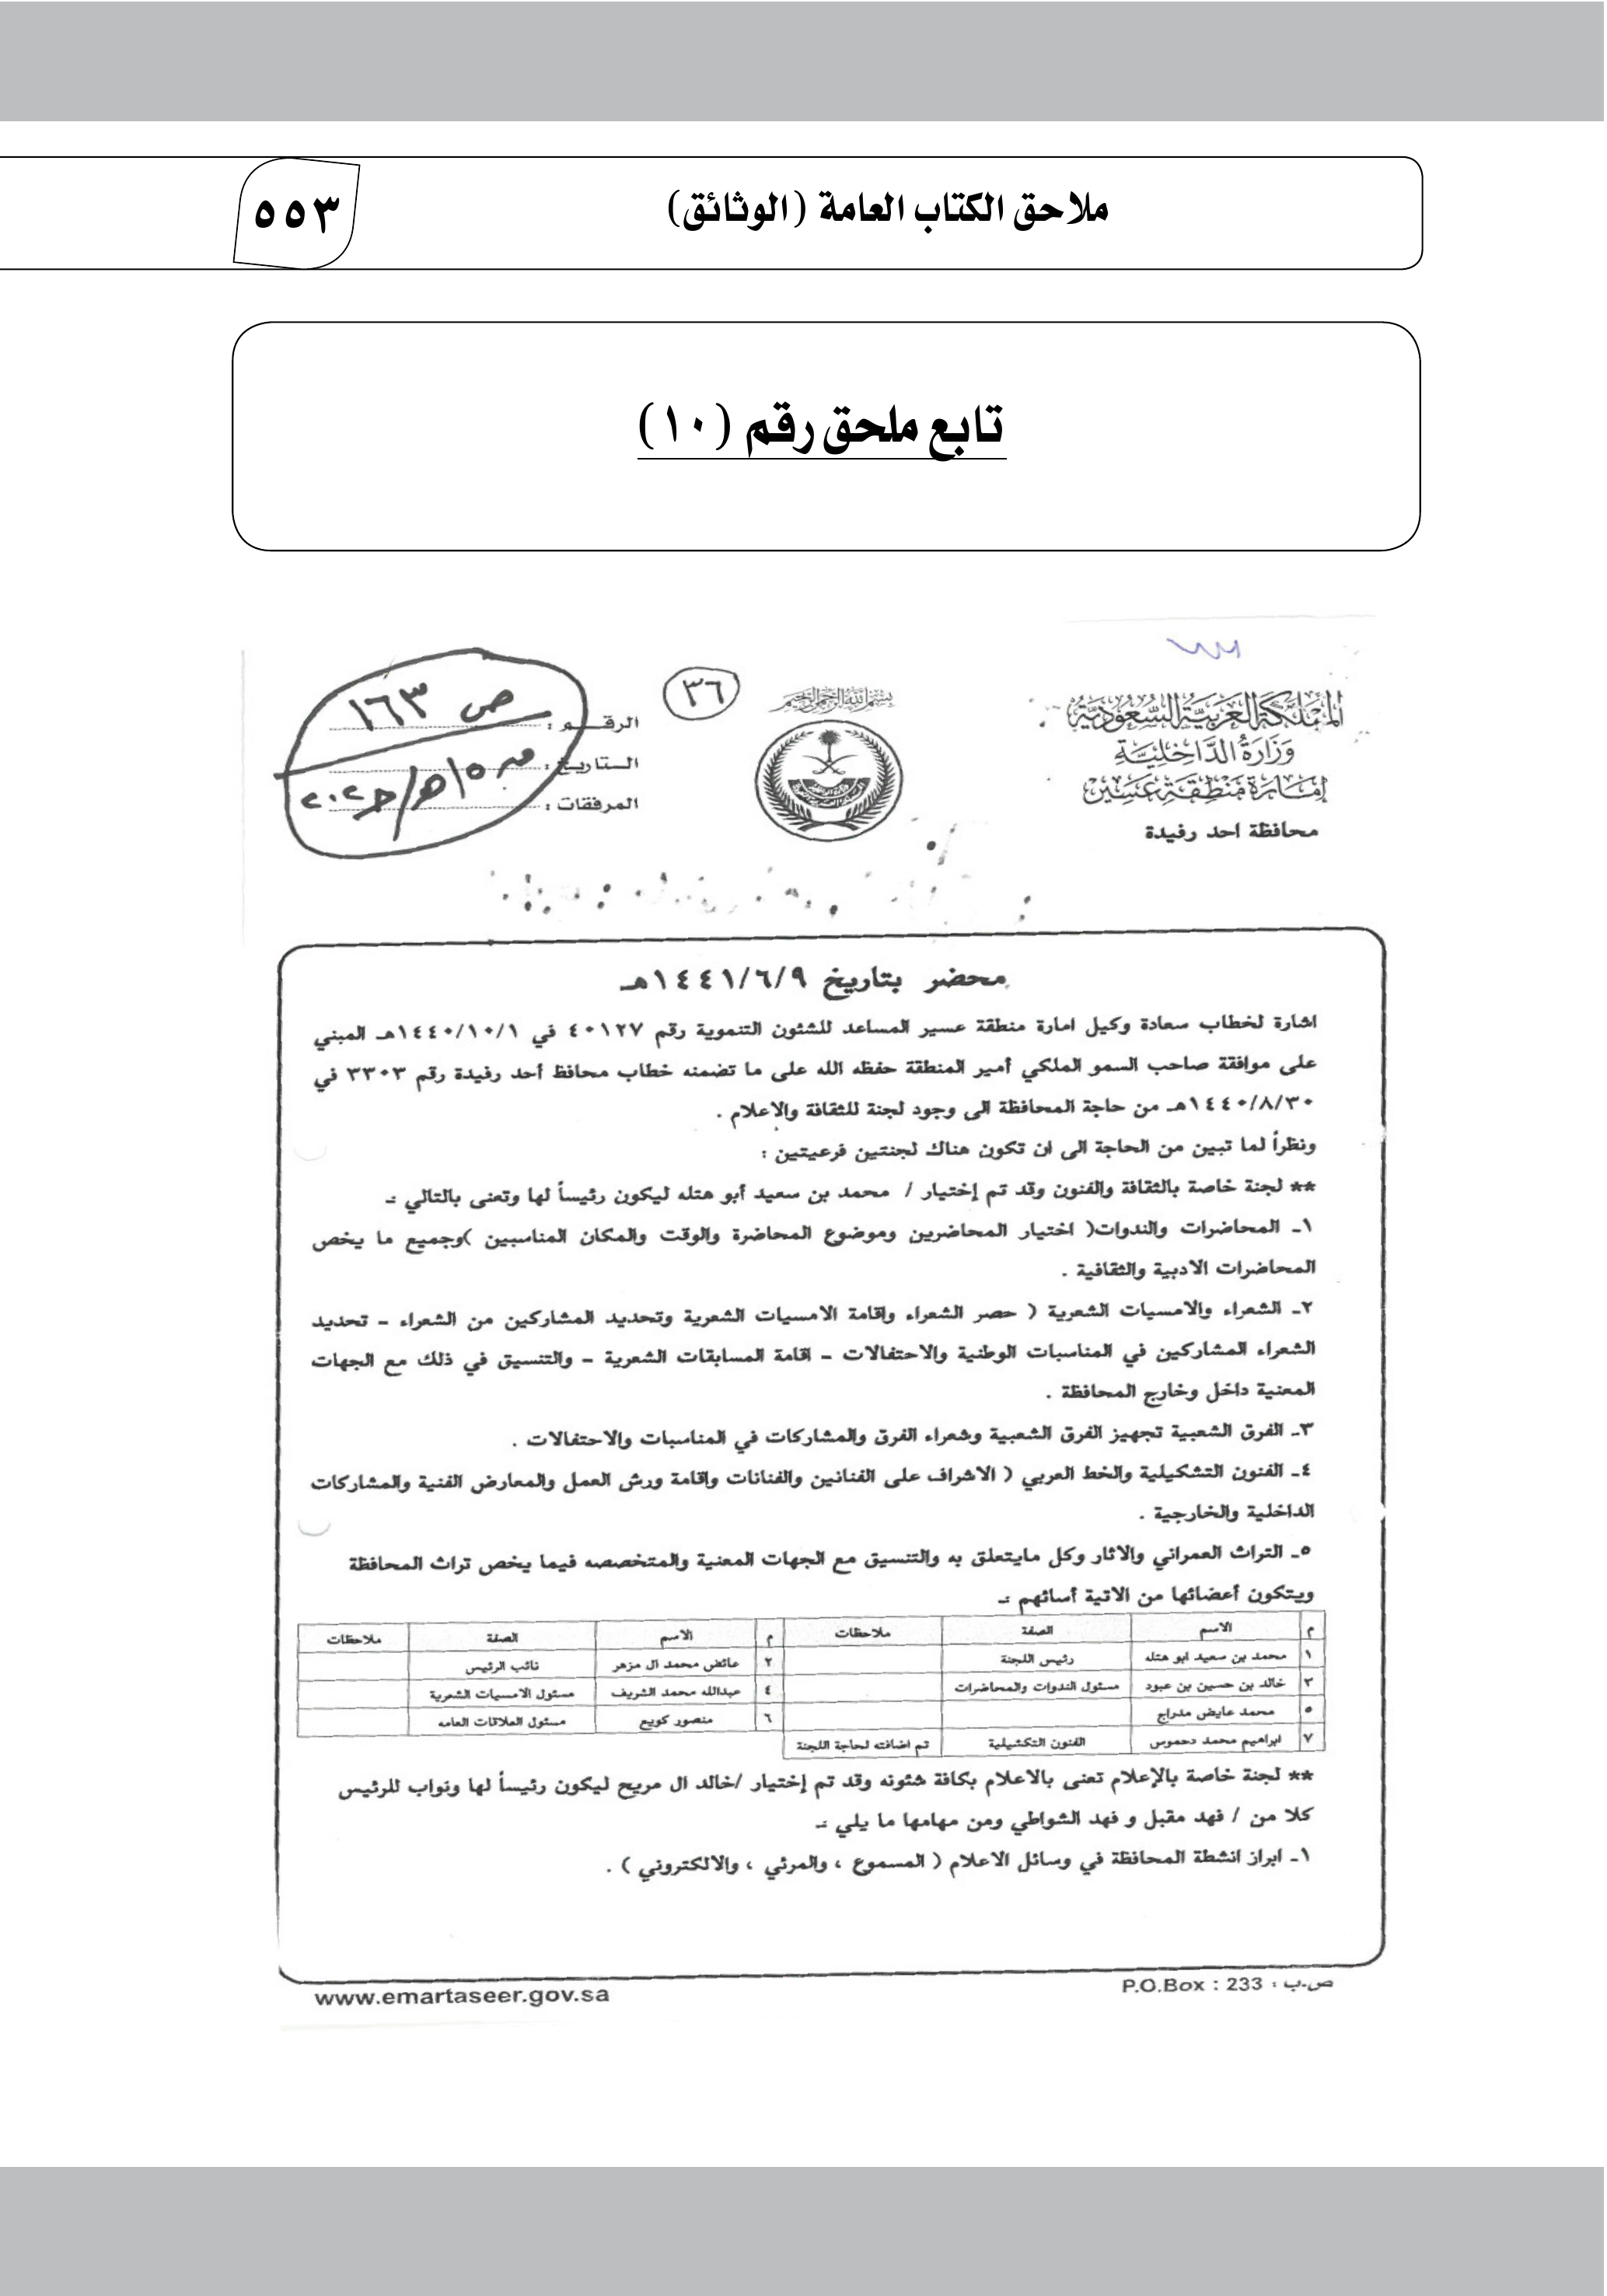 ملاحق الكتاب العامة (الوثائق)
٥٥٣
تابع ملحق رقم (١٠)
المملكة العربية السعودية
وزارة الداخلية
إمارة منطقة عسير
محافظة احد رفيدة
بسم الله الرحمن الرحيم
٣٦
الرقم : ص ١٦٣
التاريخ :
المرفقات :
محضر بتاريخ ١٤٤١/٦/٩هـ
اشارة لخطاب سعادة وكيل امارة منطقة عسير المساعد للشئون التنموية رقم ٤٠١٢٧ في ١٤٤٠/١٠/١هـ المبني
على موافقة صاحب السمو الملكي أمير المنطقة حفظه الله على ما تضمنه خطاب محافظ أحد رفيدة رقم ٣٣٠٣ في
١٤٤٠/٨/٣٠هـ من حاجة المحافظة الى وجود لجنة للثقافة والإعلام .
ونظراً لما تبين من الحاجة الى ان تكون هناك لجنتين فرعيتين :
** لجنة خاصة بالثقافة والفنون وقد تم إختيار / محمد بن سعيد أبو هتله ليكون رئيساً لها وتعنى بالتالي :-
١- المحاضرات والندوات( اختيار المحاضرين وموضوع المحاضرة والوقت والمكان المناسبين )وجميع ما يخص
المحاضرات الادبية والثقافية .
٢- الشعراء والامسيات الشعرية ( حصر الشعراء واقامة الامسيات الشعرية وتحديد المشاركين من الشعراء – تحديد
الشعراء المشاركين في المناسبات الوطنية والاحتفالات – اقامة المسابقات الشعرية – والتنسيق في ذلك مع الجهات
المعنية داخل وخارج المحافظة .
٣- الفرق الشعبية تجهيز الفرق الشعبية وشعراء الفرق والمشاركات في المناسبات والاحتفالات .
٤- الفنون التشكيلية والخط العربي ( الاشراف على الفنانين والفنانات وإقامة ورش العمل والمعارض الفنية والمشاركات
الداخلية والخارجية .
٥- التراث العمراني والاثار وكل مايتعلق به والتنسيق مع الجهات المعنية والمتخصصه فيما يخص تراث المحافظة
ويتكون أعضائها من الاتية أسائهم :-
م الاسم الصفة ملاحظات م الاسم الصفة ملاحظات
١ محمد بن سعيد ابو هتله رئيس اللجنة ٢ عائض محمد ال مزهر نائب الرئيس
٣ خالد بن حسين بن عبود مسئول الندوات والمحاضرات ٤ عبدالله محمد الشريف مسئول الامسيات الشعرية
٥ محمد عايض مدراج ٦ منصور كويع مسئول العلاقات العامه
٧ ابراهيم محمد دحموس الفنون التكشيلية تم اضافته لحاجة اللجنة
** لجنة خاصة بالإعلام تعنى بالاعلام بكافة شئونه وقد تم إختيار /خالد ال مريح ليكون رئيساً لها ونواب للرئيس
كلا من / فهد مقبل و فهد الشواطي ومن مهامها ما يلي :-
١- ابراز انشطة المحافظة في وسائل الاعلام ( المسموع ، والمرئي ، والالكتروني ) .
ص.ب : P.O.Box : 233
www.emartaseer.gov.sa